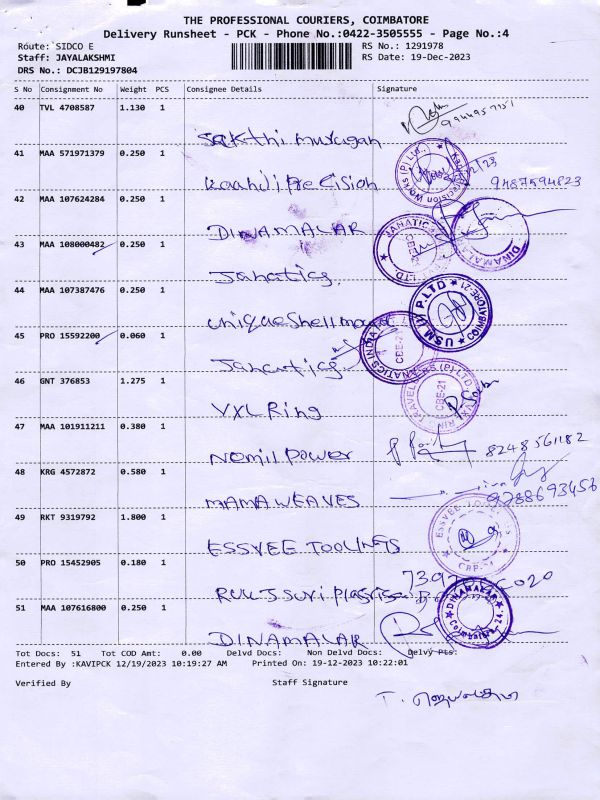 THE PROFESSIONAL COURIERS, COIMBATORE
Delivery Runsheet - PCK - Phone No.:0422-3505555 - Page No.:4
Route: SIDCO E
RS No.: 1291978
Staff: JAYALAKSHMI
RS Date: 19-Dec-2023
DRS No.: DCJB129197804
S No Consignment No Weight PCS Consignee Details Signature
40 TVL 4708587 1.130 1
Sakthi murugan
41 MAA 571971379 0.250 1
Precision
9487594823
42 MAA 107624284 0.250 1
DINAMALAR
43 MAA 108000482 0.250 1
Janatics
44 MAA 107387476 0.250 1
unique Shell
45 PRO 15592200 0.060 1
Janatics
46 GNT 376853 1.275 1
VXL Ring
47 MAA 101911211 0.380 1
Nomil Power
8248561182
48 KRG 4572872 0.580 1
MAMA WEAVES
9788693456
49 RKT 9319792 1.800 1
ESSVEE TOOLINGS
50 PRO 15452905 0.180 1
51 MAA 107616800 0.250 1
DINAMALAR
DINAMALAR
Coimbatore-24.
U.S.M.(I) P.LTD
COIMBATORE-21
CBE-21
Tot Docs: 51 Tot COD Amt: 0.00 Delvd Docs: Non Delvd Docs: Delvy Pts:
Entered By :KAVIPCK 12/19/2023 10:19:27 AM Printed On: 19-12-2023 10:22:01
Verified By Staff Signature